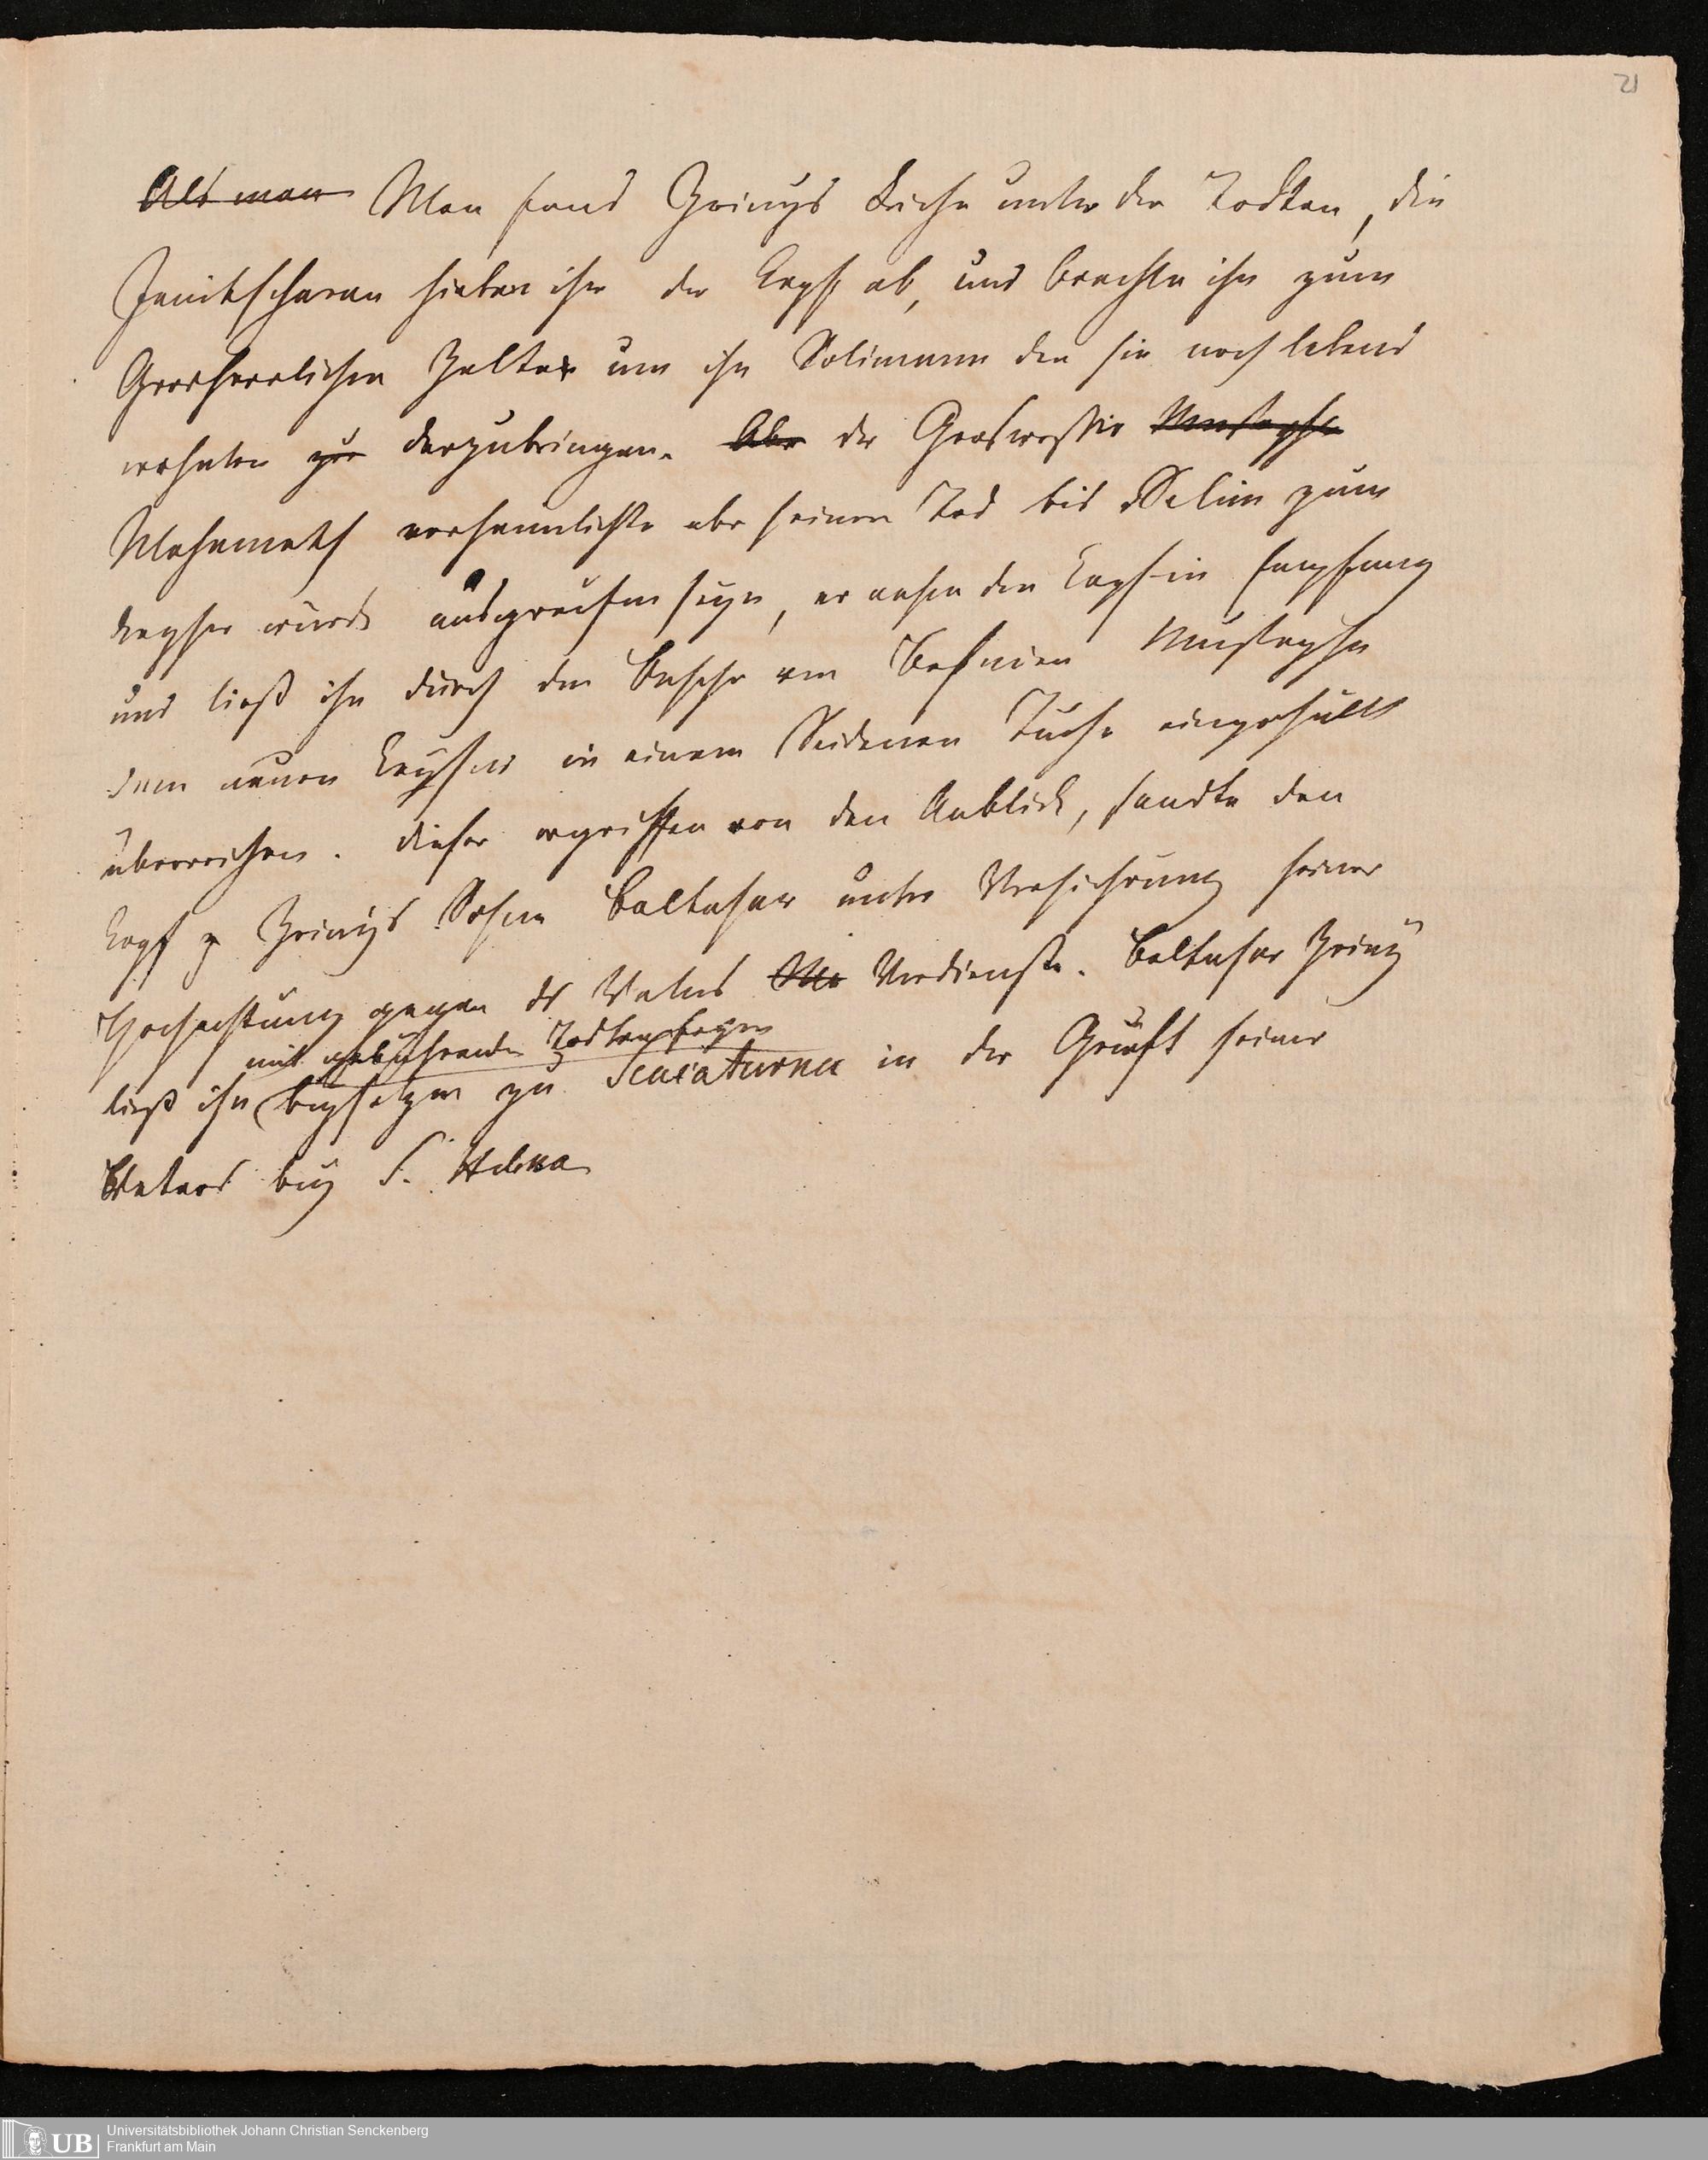 21
Als man Man fand Zrinys Leiche unter den Todten, die
Janitscharen hieben ihr den Kopf ab, und brachten ihn zum
Grosherrlichen Zelte um ihn Solimann den sie noch lebend
wähnten zu darzubringen. Aber der Groswessir Mustapha
Mehemeth verheimlichte aber seinen Tod bis Selim zum
Kayser würde ausgerufen seyn, er nahm den Kopf in Empfang
und ließ ihn durch den Bascha von Bosnien Mustapha
dem neuen Kayser in einem Seidenen Tuche eingehüllt
überreichen. dieser ergriffen von den Anblick, sandte den
Kopf Zrinys Sohne Baltasar unter Versicherung seiner
Hochachtung gegen des Vaters Verdienste. Baltasar Zriny
mit gebührender Todtenfeyer
ließ ihn beysetzen zu Sciaiaturna in der Gruft seiner
Väter bey S. Helena
UB
Universitätsbibliothek Johann Christian Senckenberg
Frankfurt am Main